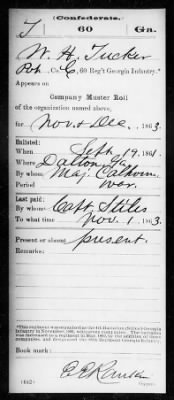 (Confederate.)
T 60 Ga.
W. H. Tucker
Pvt, Co. C, 60 Reg't Georgia Infantry.*
Appears on
Company Muster Roll
of the organization named above,
for Nov & Dec, 1863.
Enlisted:
When Sept 19, 1861.
Where Dalton, Ga.
By whom Maj. Calhoun
Period war.
Last paid:
By whom Capt. Stiles
To what time Nov. 1, 1863.
Present or absent present.
Remarks:
Book mark:
(642)
Copyist.